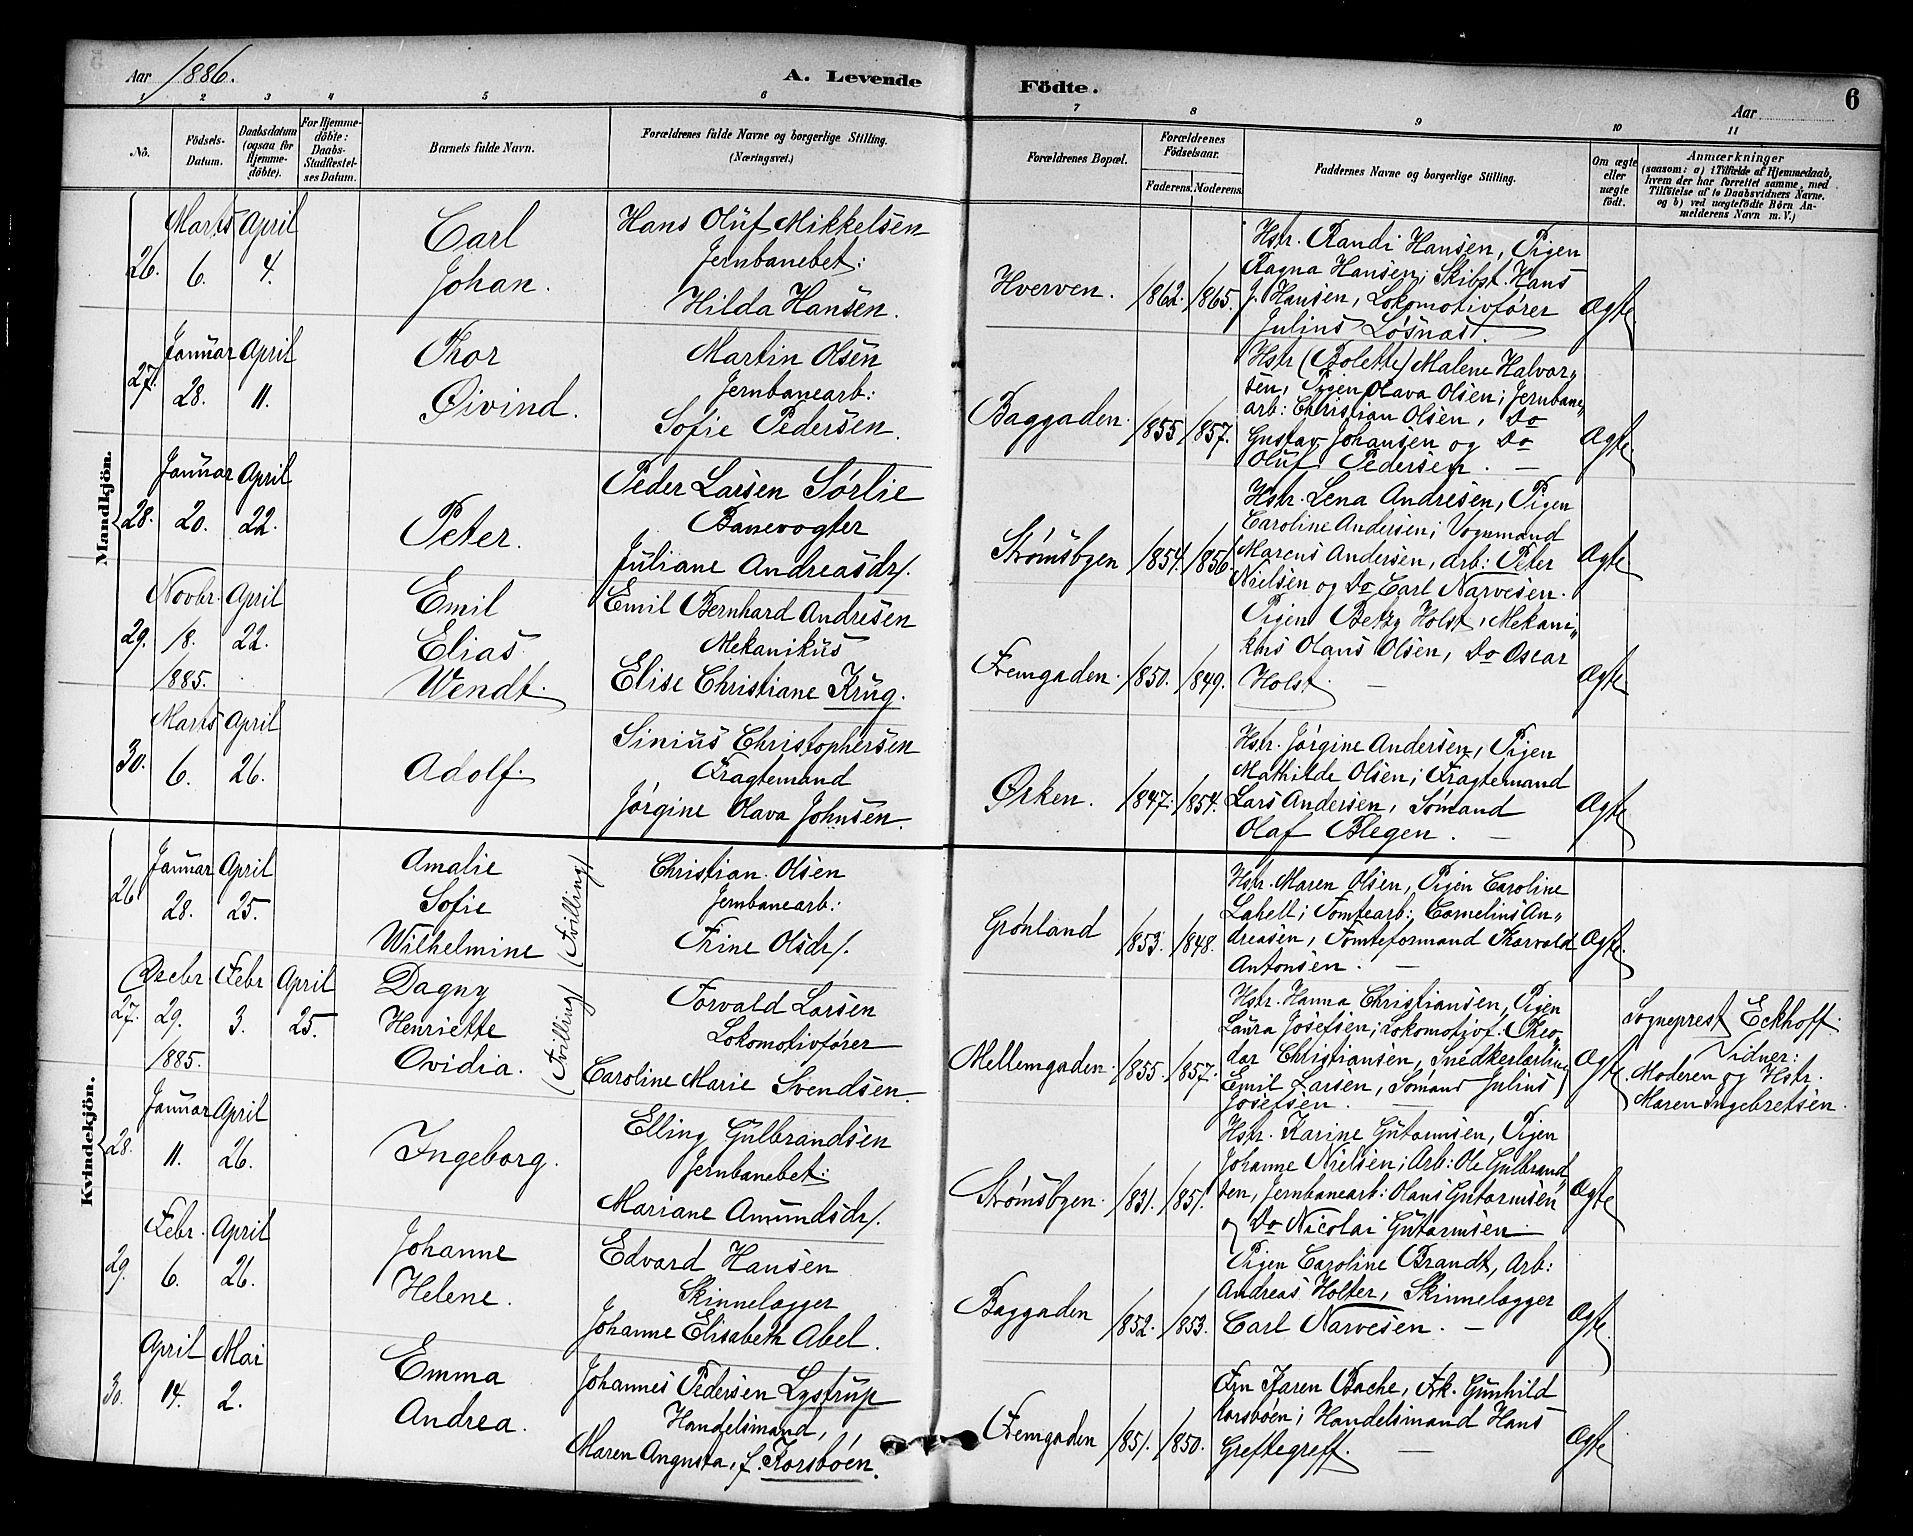 Aar 1886.
A. Levende Födte.
Aar
6
1 2 3 4 5 6 7 8 9 10 11
No.
Födsels-Datum.
Daabsdatum (ogsaa for Hjemmedöbte).
For Hjemmedöbte: Daabs-Stadfæstelses Datum.
Barnets fulde Navn.
Forældrenes fulde Navne og borgerlige Stilling.
(Næringsvei.)
Forældrenes Bopæl.
Forældrenes Födselsaar.
Faderens. Moderens.
Faddernes Navne og borgerlige Stilling.
Om ægte eller uægte födt.
Anmærkninger
(saasom: a) i Tilfælde af Hjemmedaab, hvem der har forrettet samme, med Tilföielse af to Daabsvidners Navne. og b) ved uægtefödte Börn Anmelderens Navn m. V.)
Mandkjön.
26. Marts 6. April 4.
Carl
Johan.
Hans Oluf Mikkelsen
Jernbanebet:
Hilda Hansen.
Hverven. 1862. 1865.
Hstr. Randi Hansen, Pigen
Ragna Hansen; Skibst. Hans
J. Hansen, Lokomotivfører
Julius Løsnæs.
Ægte
27. Januar 28. April 11.
Thor
Øivind.
Martin Olsen
Jernbanearb:
Sofie Pedersen.
Baggaden. 1855 1857.
Hstr (Bolette) Malene Halvor„
sen, Pigen Olava Olsen; Jernbane„
arb: Christian Olsen, Do
Gustav Johansen og Do
Oluf Pedersen. —
Ægte.
28. Januar 20. April 22.
Peter.
Peder Larsen Sørlie
Banevogter
Juliane Andreasdr.
Strømsbyen 1854. 1856.
Hstr. Lena Andresen, Pigen
Caroline Andersen; Vognmand
Marens Andersen, Arb: Peter
Nielsen og Do Carl Narvesen.
Ægte.
29. Novbr. 18. 1885. April 22.
Emil
Elias
Wendt.
Emil Bernhard Andresen
Mekanikus
Elise Christiane Krug.
Fremgaden. 1850. 1849.
Pigen Betzy Holst, Mekani„
kus Olaus Olsen, Do Oscar
Holst. —
Ægte.
30. Marts 6. April 26.
Adolf.
Sinius Christophersen
Fragtemand
Jørgine Olava Johnsen.
Ørken. 1847. 1854.
Hstr. Jørgine Andersen, Pigen
Mathilde Olsen; Fragtemand
Lars Andersen, Sømand
Olaf Blegen. —
Ægte
Kvindekjön.
26 Januar 28. April 25.
Amalie
Sofie
Wilhelmine
(Tvilling)
Christian Olsen
Jernbanearb:
Trine Olsdr.
Grønland 1853. 1848.
Hstr. Maren Olsen, Pigen Caroline
Lahell; Tomtearb: Cornelius An„
dreasen, Tomteformand Thorvald
Antonsen. —
Ægte.
27. Decbr 29. 1885. Febr 3. April 25.
Dagny
Henriette
Ovidia.
(Tvilling)
Torvald Larsen
Lokomotivfører
Caroline Marie Svendsen.
Mellemgaden. 1855. 1857.
Hstr. Hanna Christiansen, Pigen
Laura Josefsen; Lokomotivf. Theo„
dor Christiansen, Snedkerlærling
Emil Larsen, Sømand Julius
Josefsen. —
Ægte
Sogneprest Eckhoff.
Vidner:
Moderen og Hstr.
Maren Ingebretsen.
28. Januar 11. April 26.
Ingeborg.
Elling Gulbrandsen
Jernbanebet:
Mariane Amundsdr.
Strømsbyen. 1831. 1851.
Hstr. Karine Gutormsen, Pigen
Johanne Nielsen; Arb: Ole Gulbrand„
sen, Jernbanearb: Olaus Gutormsen
og Do Nicolai Gutormsen.
Ægte
29. Febr. 6. April 26.
Johanne
Helene.
Edvard Hansen
Skinnelægger
Johanne Elisabeth Abel.
Baggaden 1852. 1853.
Pigen Caroline Brandt, Arb:
Andreas Holter, Skinnelægger
Carl Narvesen. —
Ægte.
30. April 14. Mai 2.
Emma
Andrea.
Johannes Pedersen Lystrup
Handelsmand,
Maren Augusta, f. Korsbøen.
Fremgaden 1851. 1850.
Fru Karen Bache, Frk. Gunhild
Korsbøen; Handelsmand Hans
Greftegreff. —
Ægte